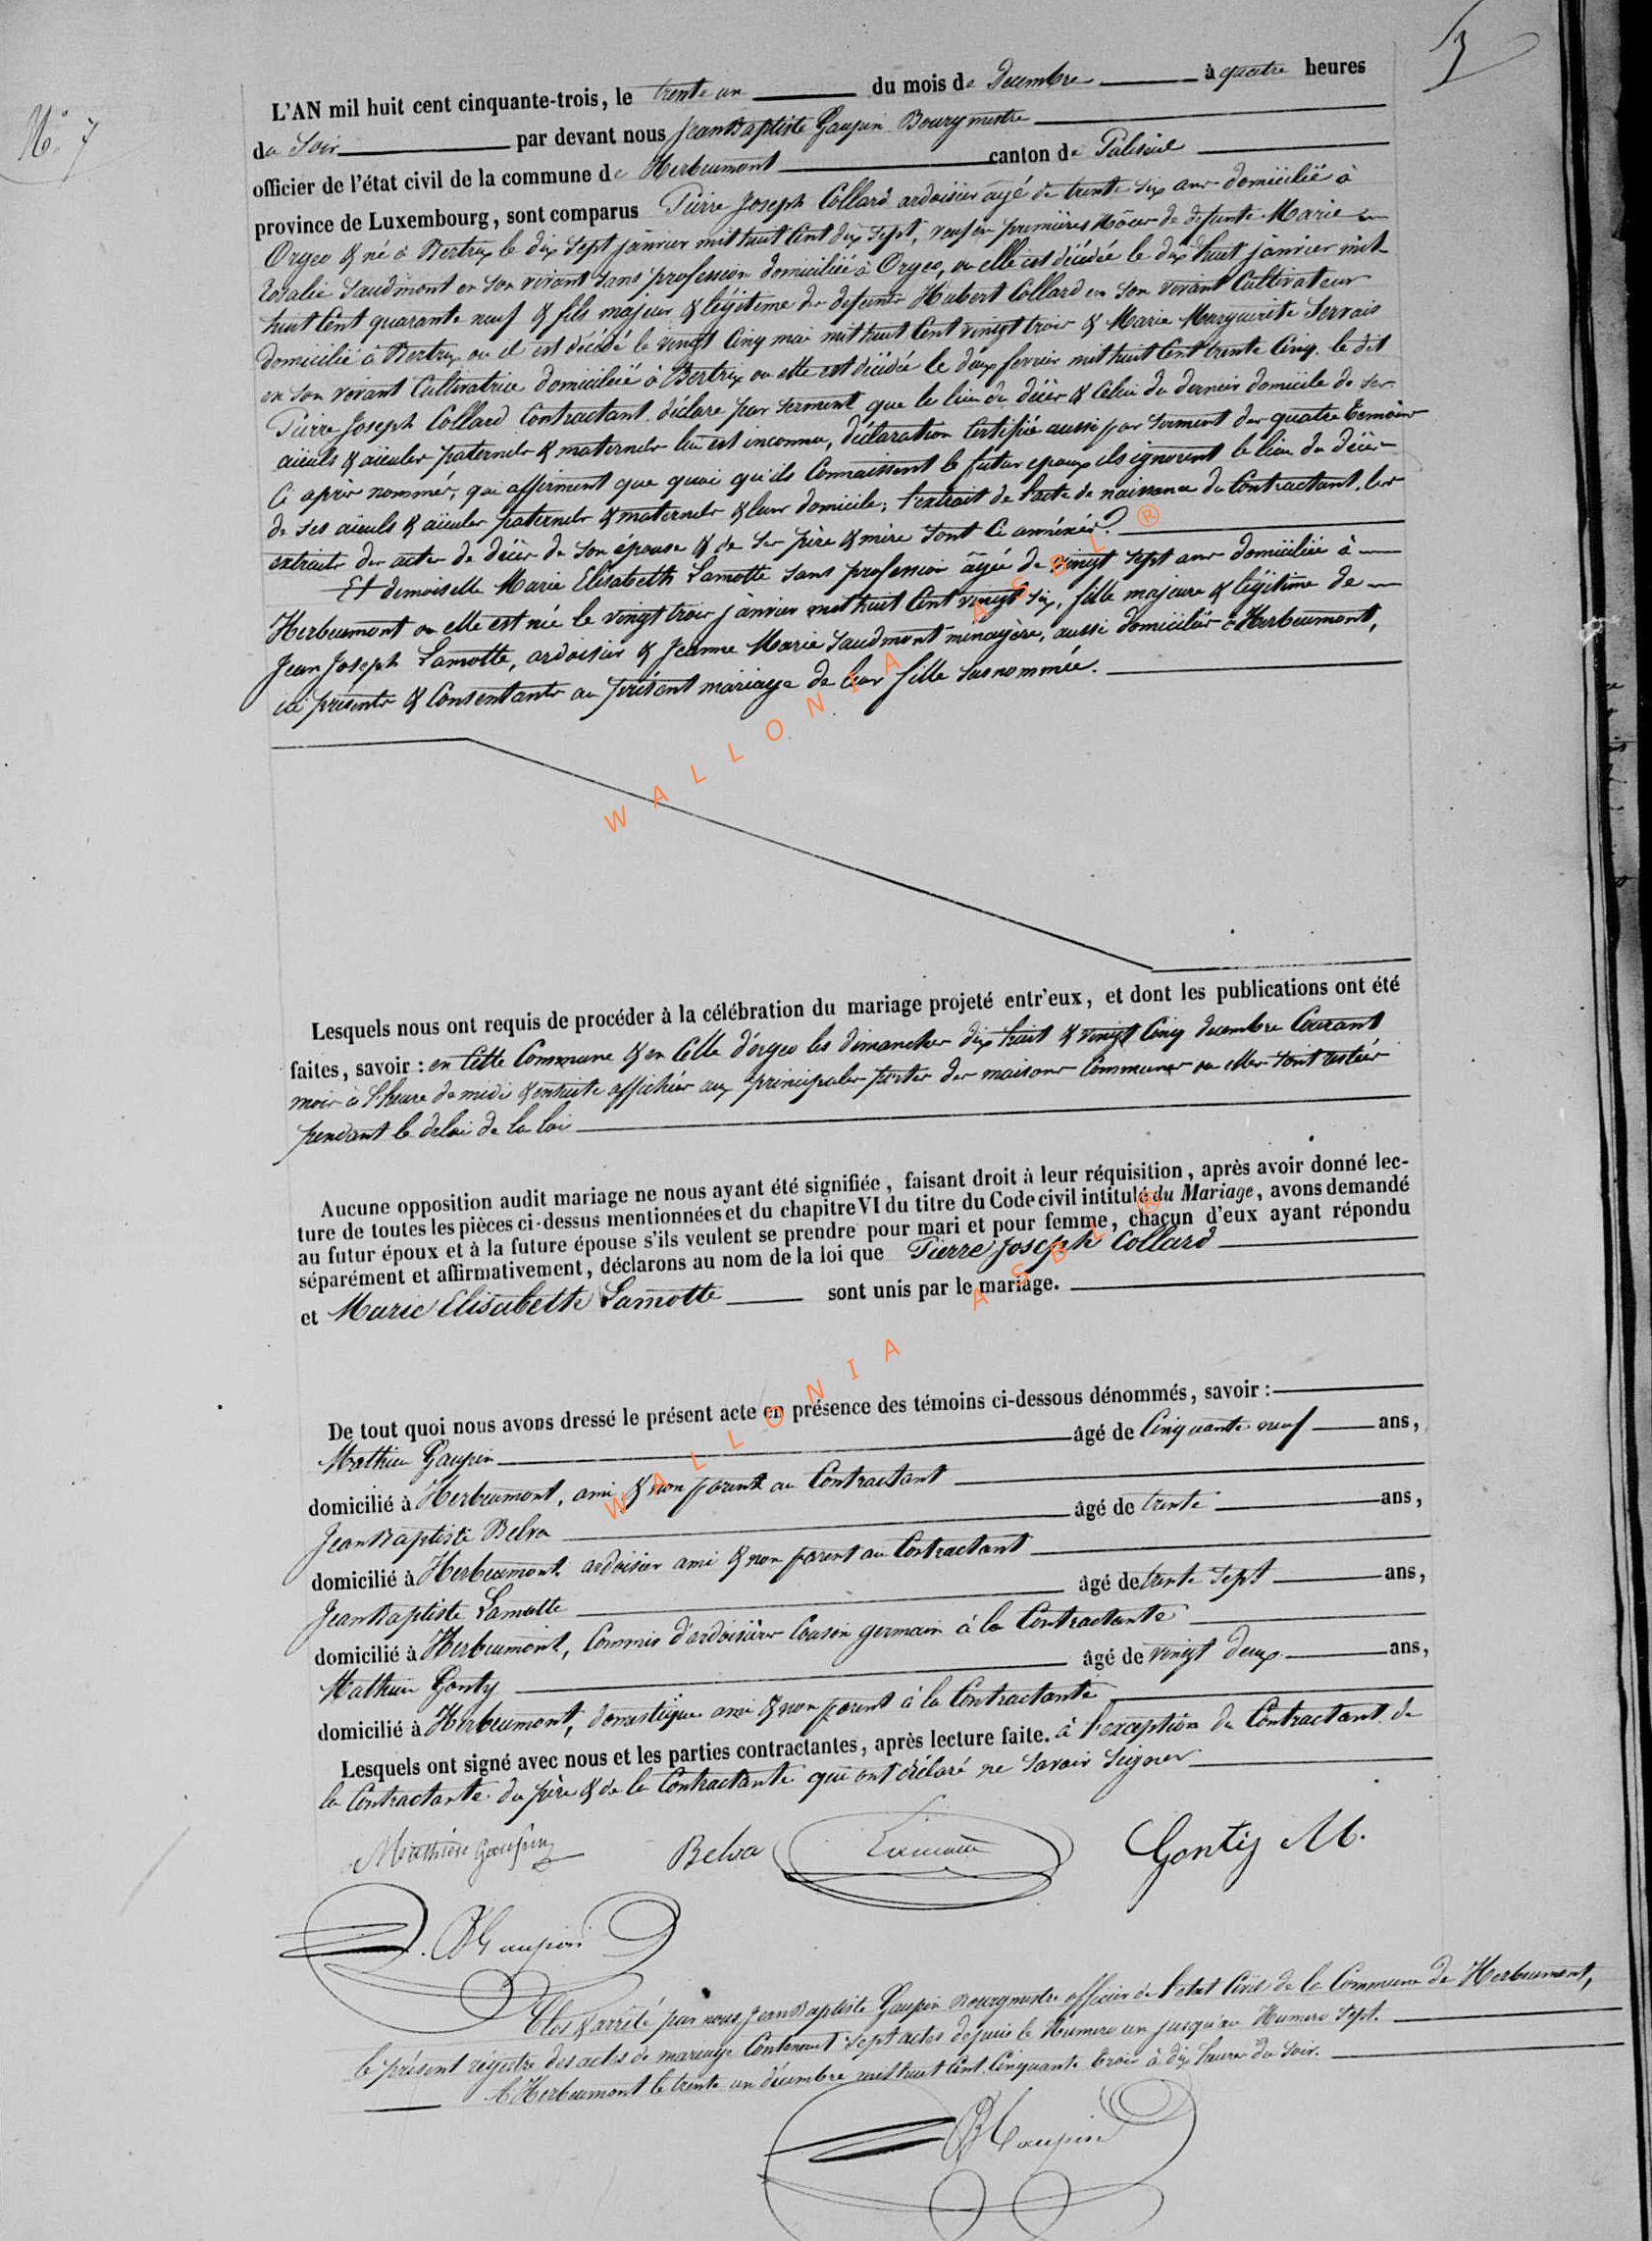 3
N° 7
L'AN mil huit cent cinquante-trois, le trente un du mois de Decembre à quatre heures
du Soir par devant nous Jean Baptiste Gaupin Bourgmestre
officier de l'état civil de la commune de Herbeumont canton de Paliseul
province de Luxembourg, sont comparus Pierre Joseph Collard ardoisier âgé de trente six ans domicilié à
Orgeo & né à Bertrix le dix sept janvier mil huit cent dix sept, veuf en premières nôces de defunte Marie
Rosalie Saudmont en son vivant sans profession domiciliée à Orgeo, ou elle est décédée le dix huit janvier mil
huit cent quarante neuf & fils majeur & légitime de defunts Hubert Collard en son vivant Cultivateur
domicilié à Bertrix ou il est décédé le vingt cinq mai mil huit cent vingt trois & Marie Marguerite Servais
en son vivant Cultivatrice domiciliée à Bertrix ou elle est décédée le deux fevrier mil huit cent trente cinq. le dit
Pierre Joseph Collard Contractant déclare par serment que le lieu du décès & celui du dernier domicile de ses
aïeuls & aïeules paternels & maternels lui est inconnu, déclaration certifiée aussi par serment des quatre temoins
ci après nommés, qui affirment que quoi qu'ils connaissent le futur epoux ils ignorent le lieu du décès
de ses aïeuls & aïeules paternels & maternels & leur domicile; l'extrait de l'acte de naissance du Contractant, les
extraits des actes de décès de son épouse & de ses père & mère sont ci annéxés.
Et demoiselle Marie Elisabeth Lamotte sans profession âgée de vingt sept ans domiciliée à
Herbeumont ou elle est née le vingt trois janvier mil huit cent vingt six, fille majeure & légitime de
Jean Joseph Lamotte, ardoisier & Jeanne Marie Saudmont menagère, aussi domiciliés à Herbeumont,
ici présents & consentants au présent mariage de leur fille susnommée.
WALLONIA ASBL ®
Lesquels nous ont requis de procéder à la célébration du mariage projeté entr'eux, et dont les publications ont été
faites, savoir : en cette Commune & en celle d'orgeo les dimanches dix huit & vingt cinq decembre Courant
mois à l'heure de midi & ensuite affichées aux principales portes des maisons Communes ou elles sont restées
pendant le delai de la loi
Aucune opposition audit mariage ne nous ayant été signifiée, faisant droit à leur réquisition, après avoir donné lec-
ture de toutes les pièces ci-dessus mentionnées et du chapitre VI du titre du Code civil intitulé du Mariage, avons demandé
au futur époux et à la future épouse s'ils veulent se prendre pour mari et pour femme, chacun d'eux ayant répondu
séparément et affirmativement, déclarons au nom de la loi que Pierre Joseph Collard
et Marie Elisabeth Lamotte sont unis par le mariage.
WALLONIA ASBL ®
De tout quoi nous avons dressé le présent acte en présence des témoins ci-dessous dénommés, savoir :
Mathieu Gaupin âgé de Cinquante neuf ans,
domicilié à Herbeumont, ami & non parent au Contractant
Jean Baptiste Belva âgé de trente ans,
domicilié à Herbeumont ardoisier ami & non parent au Contractant
Jean Baptiste Lamotte âgé de trente sept ans,
domicilié à Herbeumont, Commis d'ardoisières Cousin germain à la Contractante
Mathieu Gonty âgé de vingt deux ans,
domicilié à Herbeumont, domestique ami & non parent à la Contractante
Lesquels ont signé avec nous et les parties contractantes, après lecture faite. à l'exception du Contractant de
la Contractante du père & de la Contractante qui ont déclaré ne savoir signer
Mathieu Gaupin Belva Lamotte Gontij M.
JB Gaupin
Clos & arrêté par nous Jean Baptiste Gaupin Bourgmestre officier de l'état Civil de la Commune de Herbeumont,
le présent régistre des actes de mariage Contenant sept actes depuis le Numero un jusqu'au Numero sept.
à Herbeumont le trente un décembre mil huit cent Cinquante trois à dix heures du Soir.
JB Gaupin